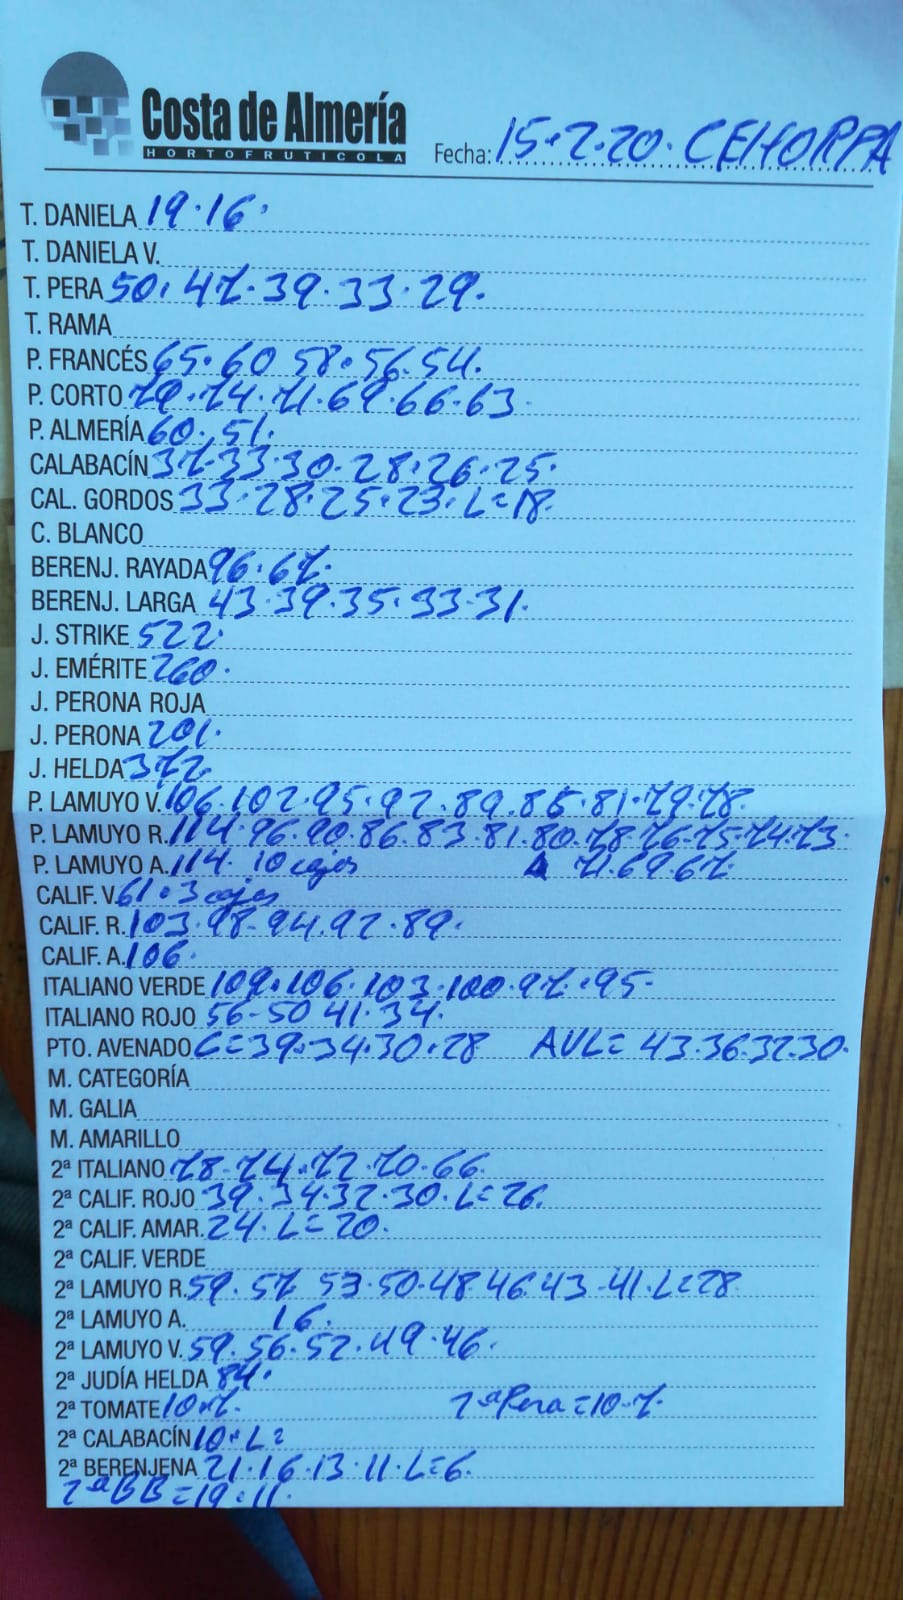 Costa de Almería
HORTOFRUTICOLA
Fecha: 15.2.20. CEHORPA
T. DANIELA 19.16.
T. DANIELA V.
T. PERA 50. 47. 39. 33. 29.
T. RAMA
P. FRANCÉS 65. 60 58. 56. 54.
P. CORTO 79. 74. 71. 69. 66. 63.
P. ALMERÍA 60. 51.
CALABACÍN 37. 33. 30. 28. 26. 25.
CAL. GORDOS 33. 28. 25. 23. L=18.
C. BLANCO
BERENJ. RAYADA 96. 67.
BERENJ. LARGA 43. 39. 35. 33. 31.
J. STRIKE 522.
J. EMÉRITE 260.
J. PERONA ROJA
J. PERONA 201.
J. HELDA 372.
P. LAMUYO V. 106. 102. 95. 92. 89. 85. 81. 79. 78.
P. LAMUYO R. 114. 96. 90. 86. 83. 81. 80. 78. 76. 75. 74. 73.
P. LAMUYO A. 114. 10 cajas 71. 69. 67.
CALIF. V. 61. 3 cajas
CALIF. R. 103. 98. 94. 92. 89.
CALIF. A. 106.
ITALIANO VERDE 109. 106. 103. 100. 97. 95.
ITALIANO ROJO 56-50 41. 34.
PTO. AVENADO C=39. 34. 30. 28 AVL= 43. 36. 32. 30.
M. CATEGORÍA
M. GALIA
M. AMARILLO
2ª ITALIANO 78. 74. 72. 70. 66.
2ª CALIF. ROJO 39. 34. 32. 30. L=26.
2ª CALIF. AMAR. 24. L=20.
2ª CALIF. VERDE
2ª LAMUYO R. 59. 57 53. 50. 48. 46. 43. 41. L=28
2ª LAMUYO A. 16.
2ª LAMUYO V. 59. 56. 52. 49. 46.
2ª JUDÍA HELDA 84.
2ª TOMATE 10. 7. 2ª Pera=10. 7.
2ª CALABACÍN 10. L=
2ª BERENJENA 21. 16. 13. 11. L=6.
2ª BB=19. 11.